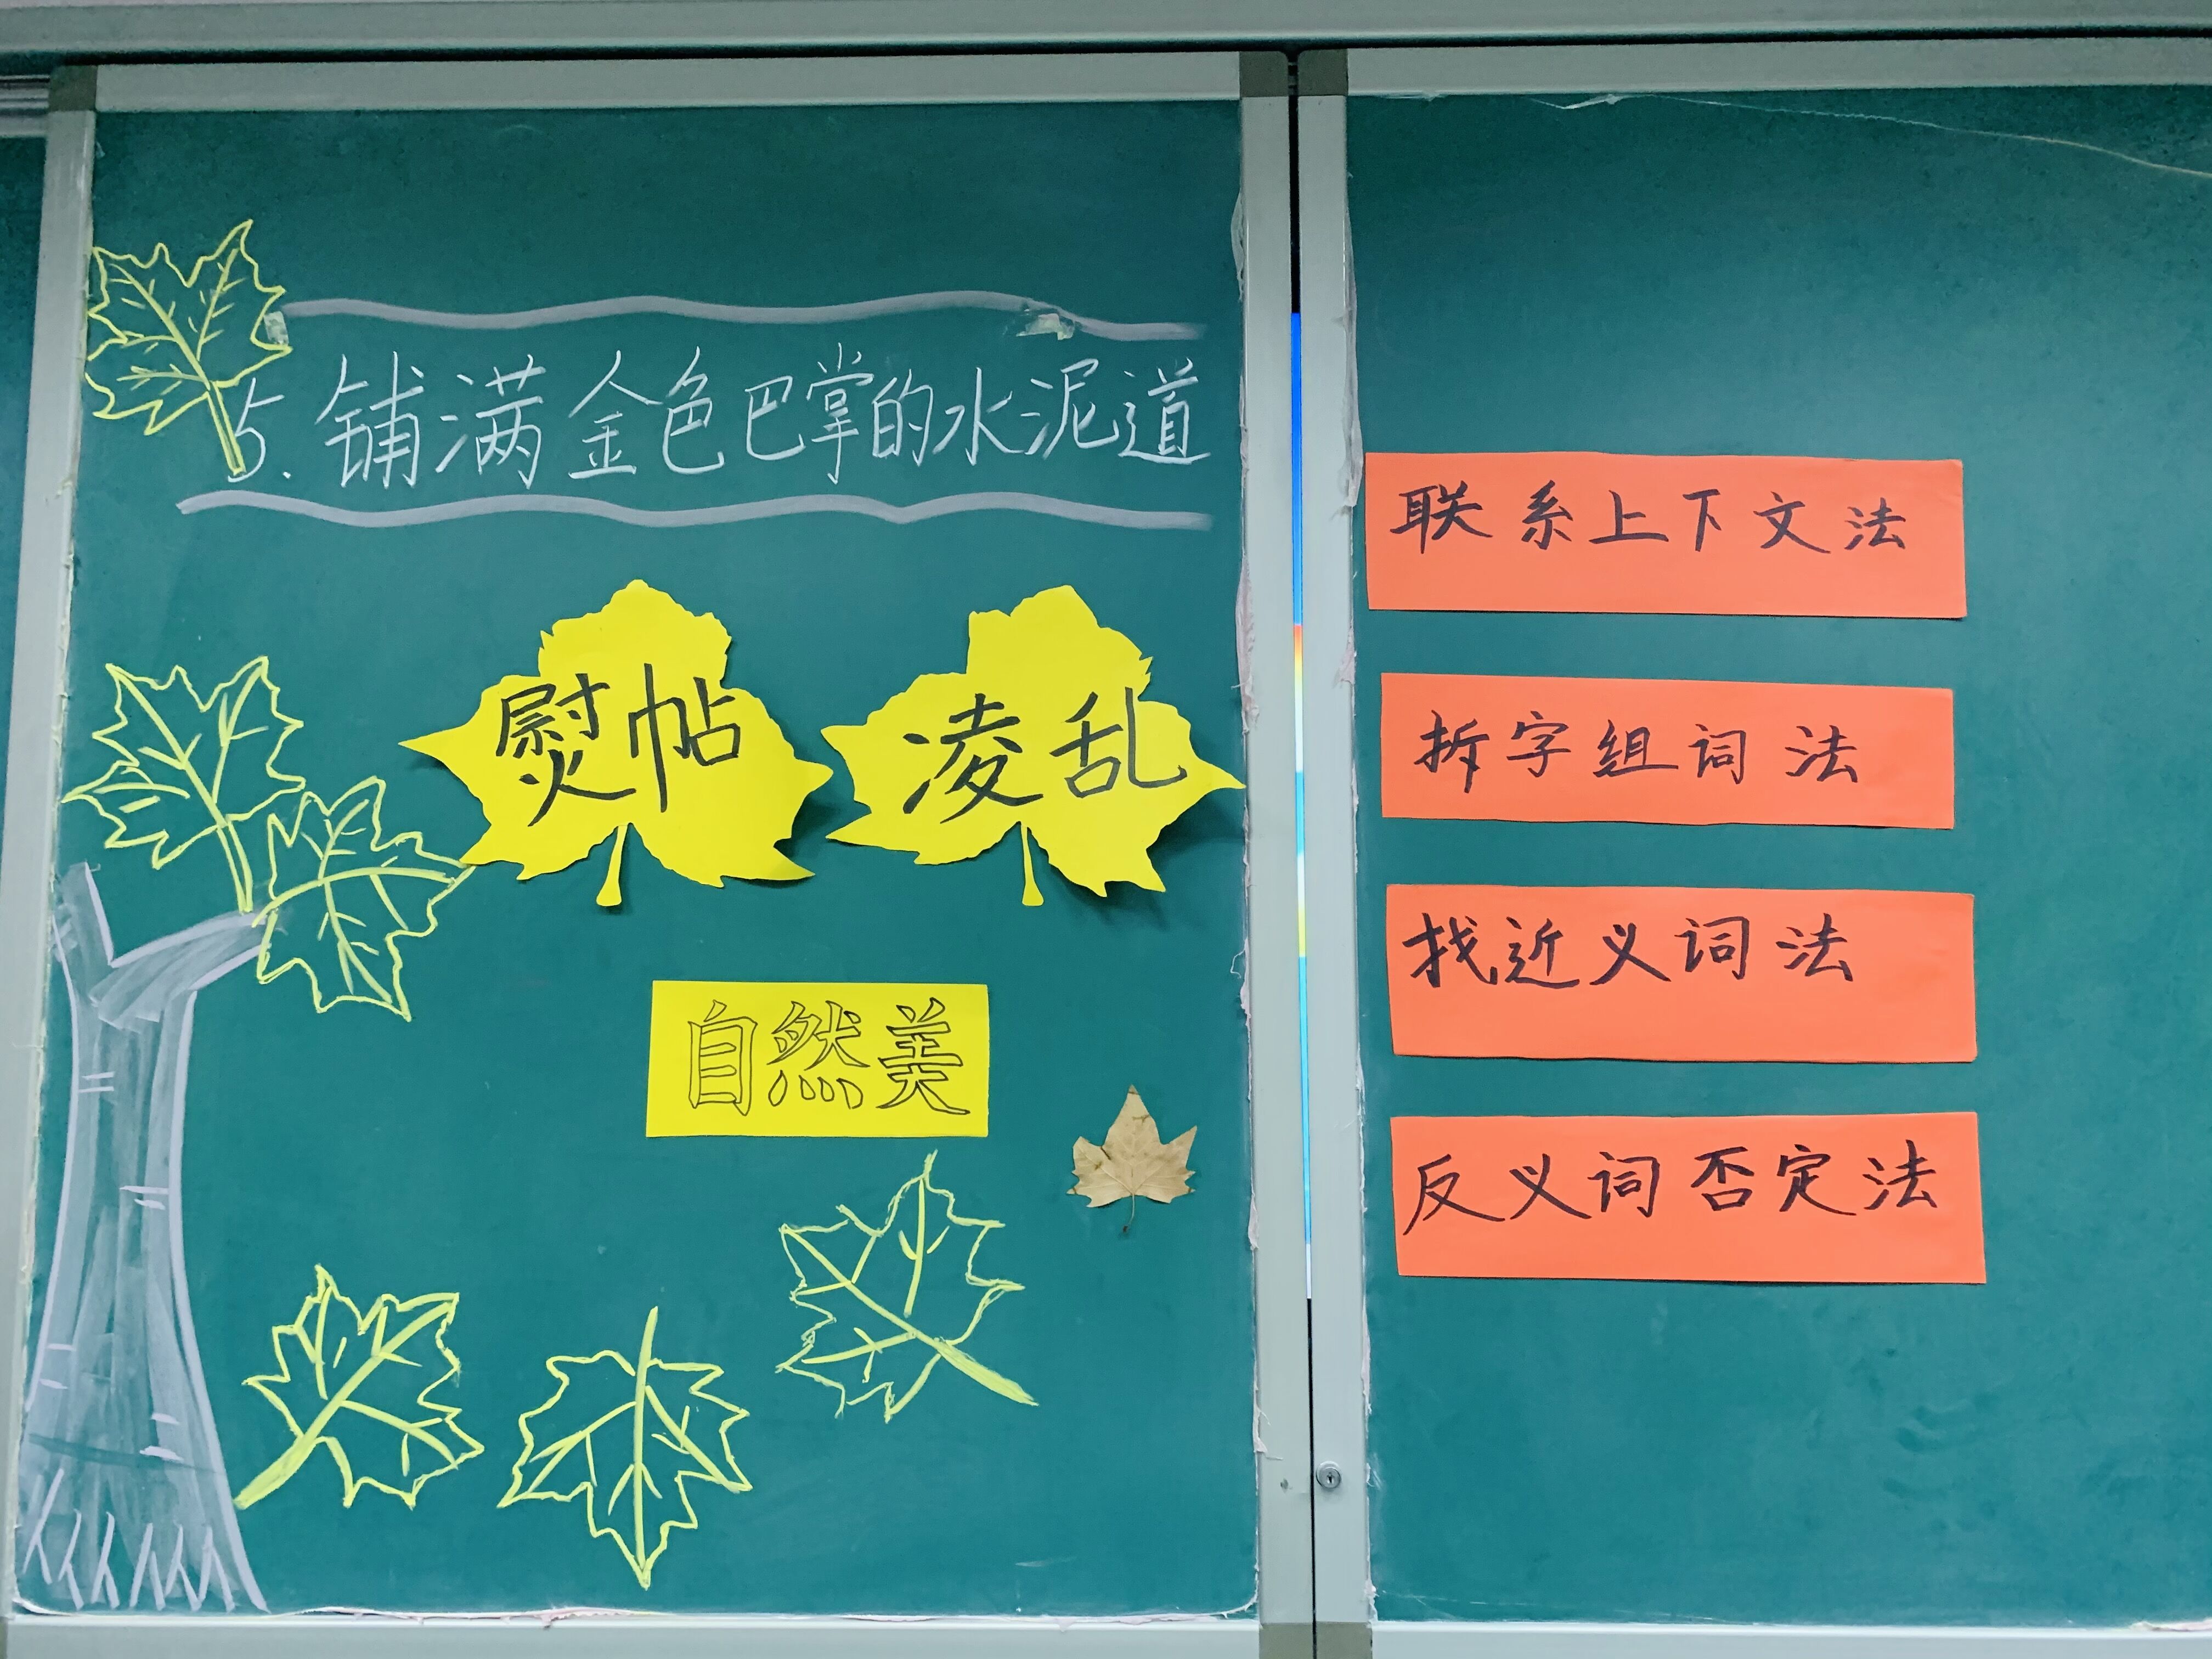 5. 铺满金色巴掌的水泥道
熨帖 凌乱
自然美
联系上下文法
拆字组词法
找近义词法
反义词否定法